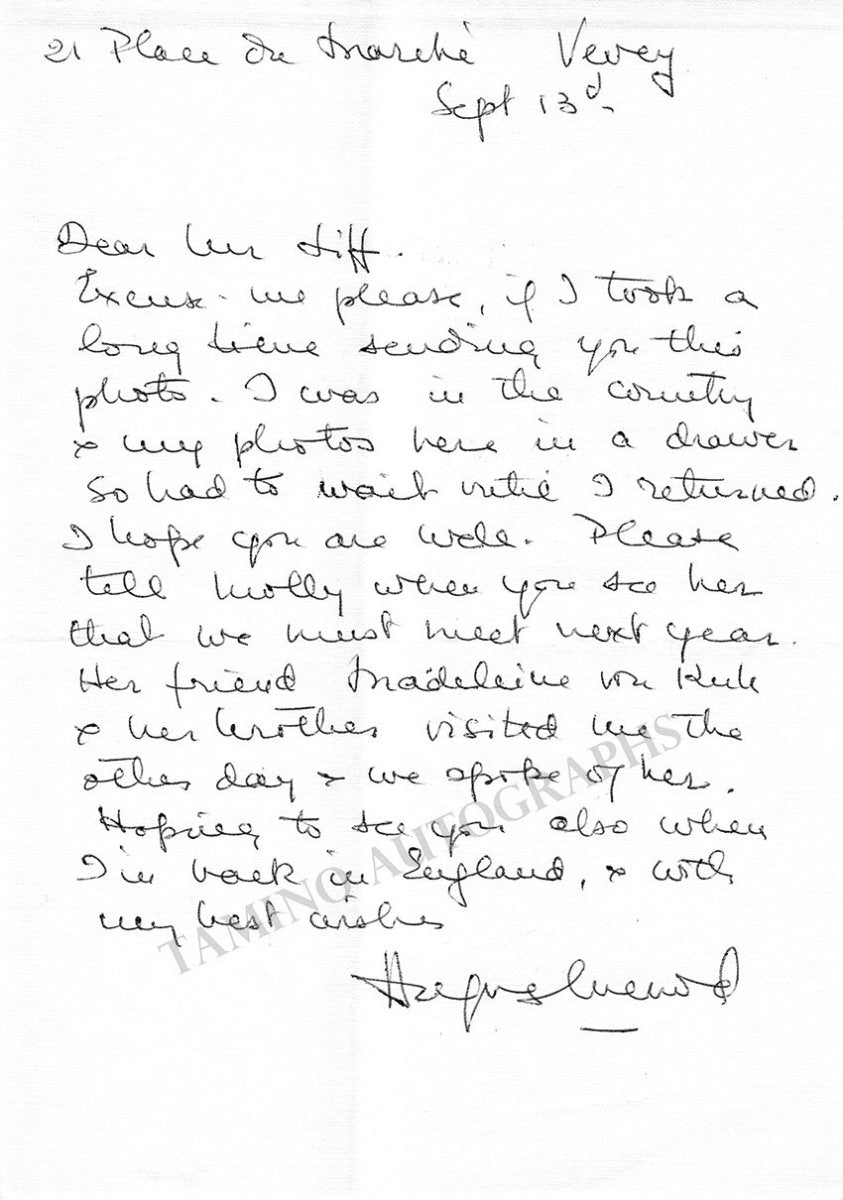 21 Place du Marché Vevey
Sept 13d.
Dear Mr Siff.
Excuse me please, if I took a
long time sending you this
photo. I was in the country
& my photos here in a drawer
so had to wait until I returned.
I hope you are well. Please
tell Molly when you see her
that we must meet next year.
Her friend Madeleine von
& her brother visited me the
other day & we spoke of her.
Hoping to see you also when
I'm back in England, & with
my best wishes
Hugues Cuenod
TAMINO AUTOGRAPHS